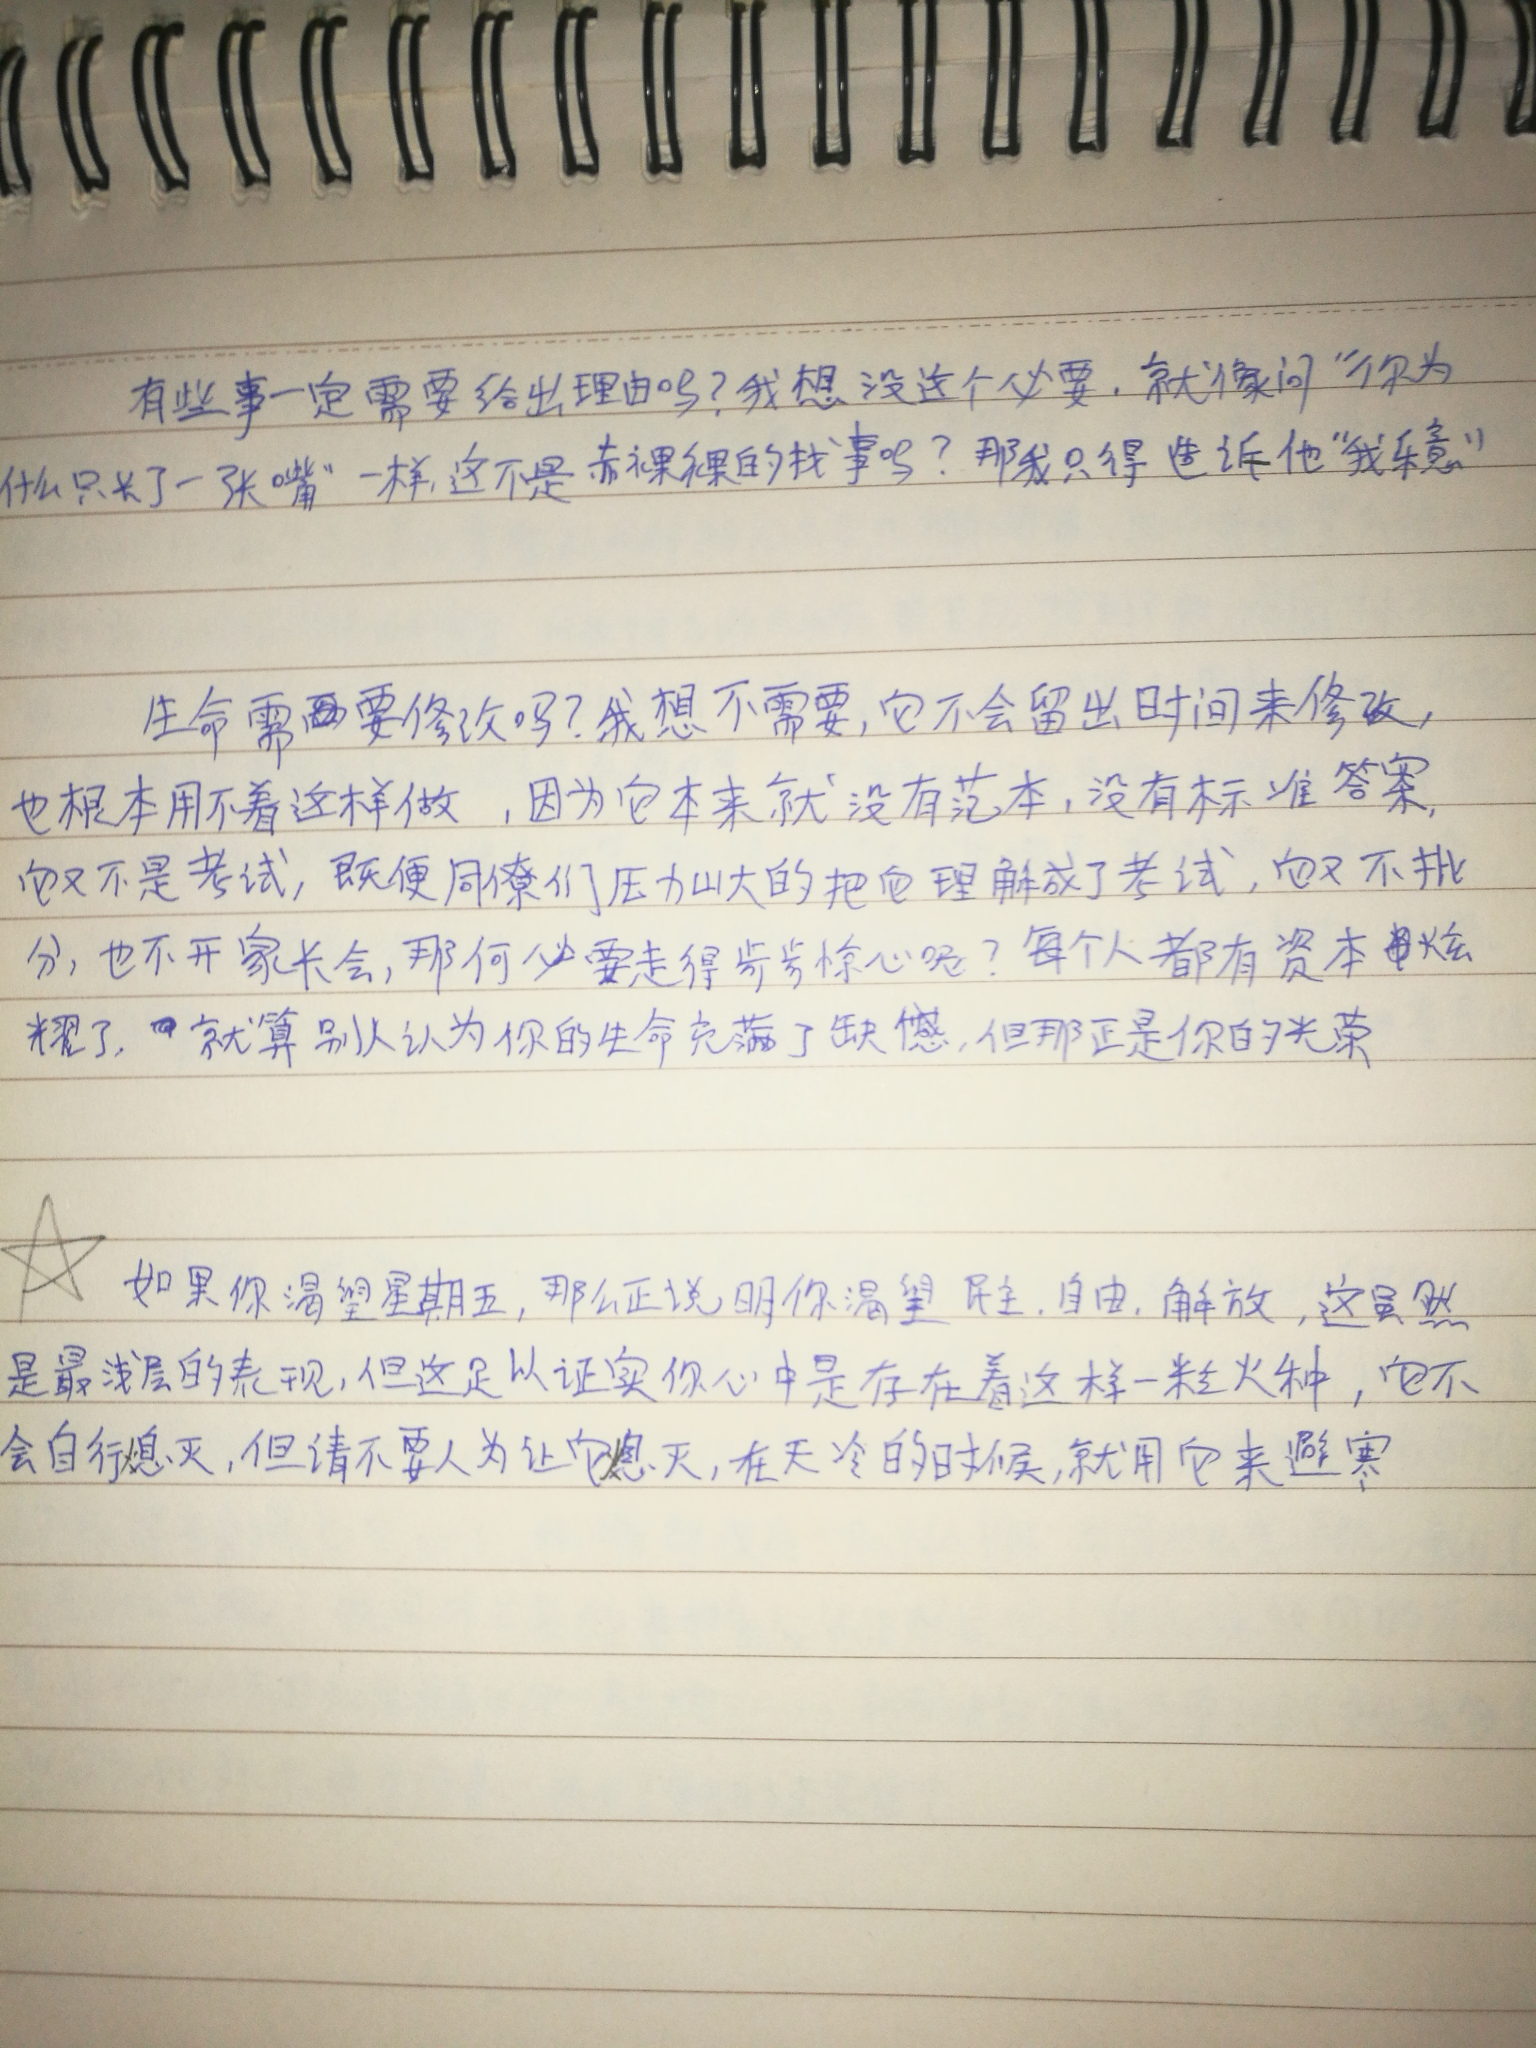 有些事一定需要给出理由吗？我想没这个必要．就像问“你为
什么只长了一张嘴”一样，这不是赤裸裸的找事吗？那我只得告诉他“我乐意”
生命需要修改吗？我想不需要，它不会留出时间来修改，
也根本用不着这样做，因为它本来就没有范本，没有标准答案，
它又不是考试，既便同僚们压力山大的把它理解成了考试，它又不批
分，也不开家长会，那何必要走得步步惊心呢？每个人都有资本炫
耀了．就算别人认为你的生命充满了缺憾，但那正是你的光荣
如果你渴望星期五，那么正说明你渴望民主．自由．解放，这虽然
是最浅层的表现，但这足以证实你心中是存在着这样一粒火种，它不
会自行熄灭，但请不要人为让它熄灭，在天冷的时候，就用它来避寒